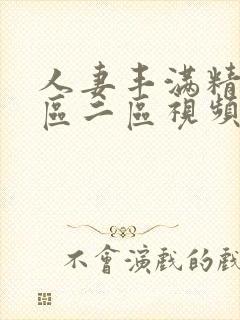 人妻丰满精
區二區視頻
不會演戲的戲